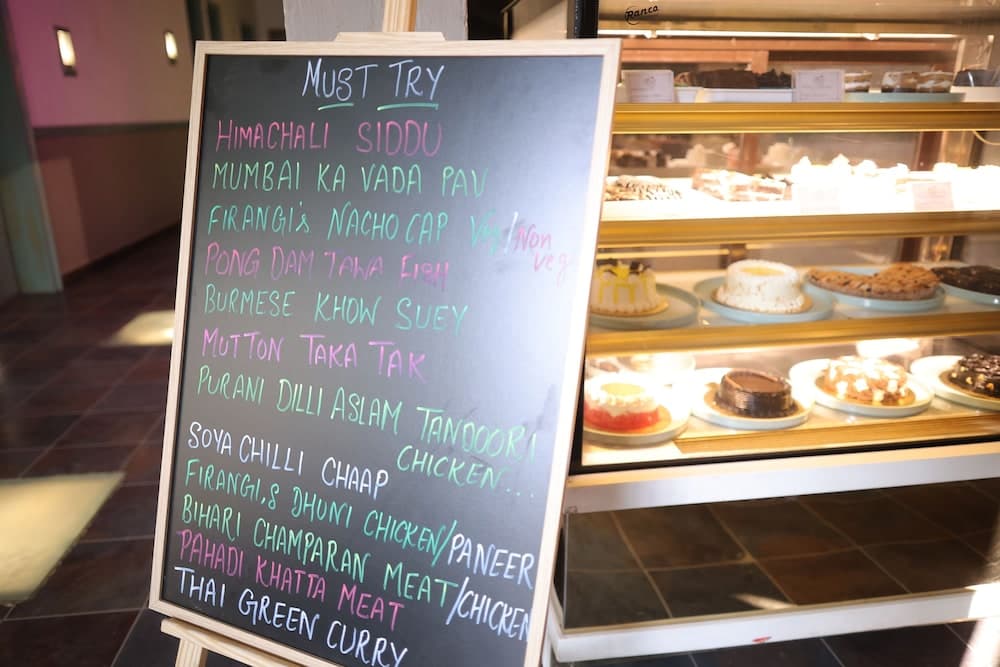 Ranco
MUST TRY
HIMACHALI SIDDU
MUMBAI KA VADA PAV
FIRANGI's NACHO CAP Veg/Non veg
PONG DAM TAWA FISH
BURMESE KHOW SUEY
MUTTON TAKA TAK
PURANI DILLI ASLAM TANDOORI
CHICKEN...
SOYA CHILLI CHAAP
FIRANGI,S DHUNI CHICKEN/PANEER
BIHARI CHAMPARAN MEAT/CHICKEN
PAHADI KHATTA MEAT
THAI GREEN CURRY